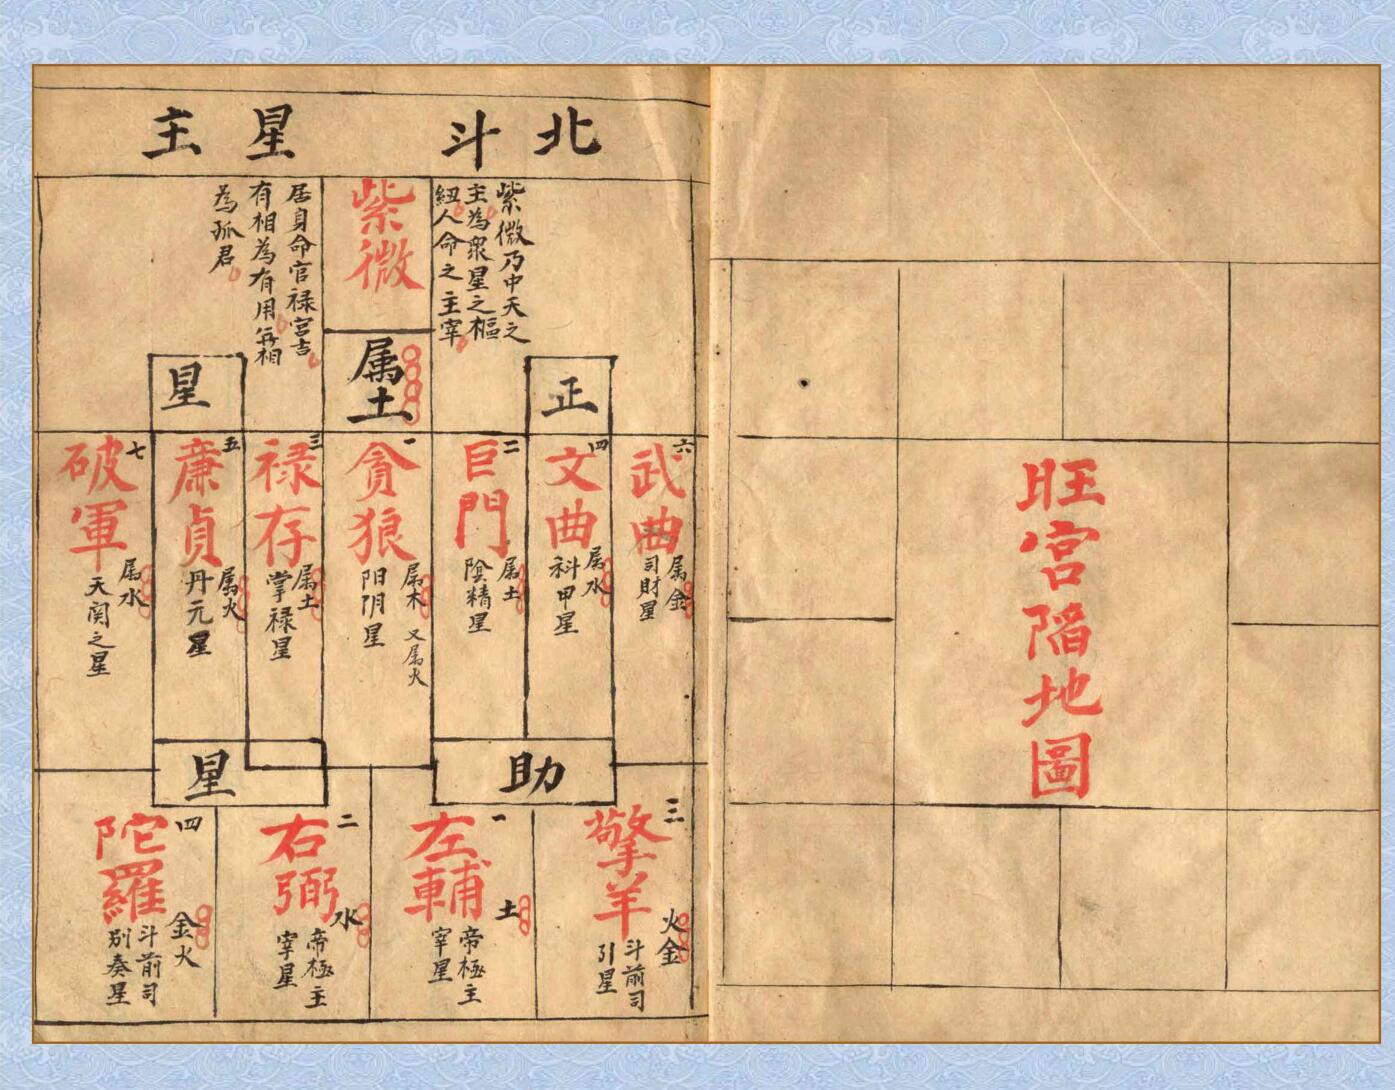 北斗
星主
紫微乃中天之
主為衆星之樞
紐人命之主宰
紫微
属土
居身命官禄宮吉
有相為有用無相
為孤君
正
星
六
武曲
属金
司財星
四
文曲
属水
科甲星
二
巨門
属土
陰精星
一
貪狼
属木 又属火
阳阴星
三
禄存
属土
掌禄星
五
廉貞
属火
丹元星
七
破軍
属水
天関之星
助
星
三
擎羊
火金
斗前司
引星
一
左輔
土
帝極主
宰星
二
右弼
水
帝極主
宰星
四
陀羅
金火
斗前司
别奏星
旺宮陷地圖